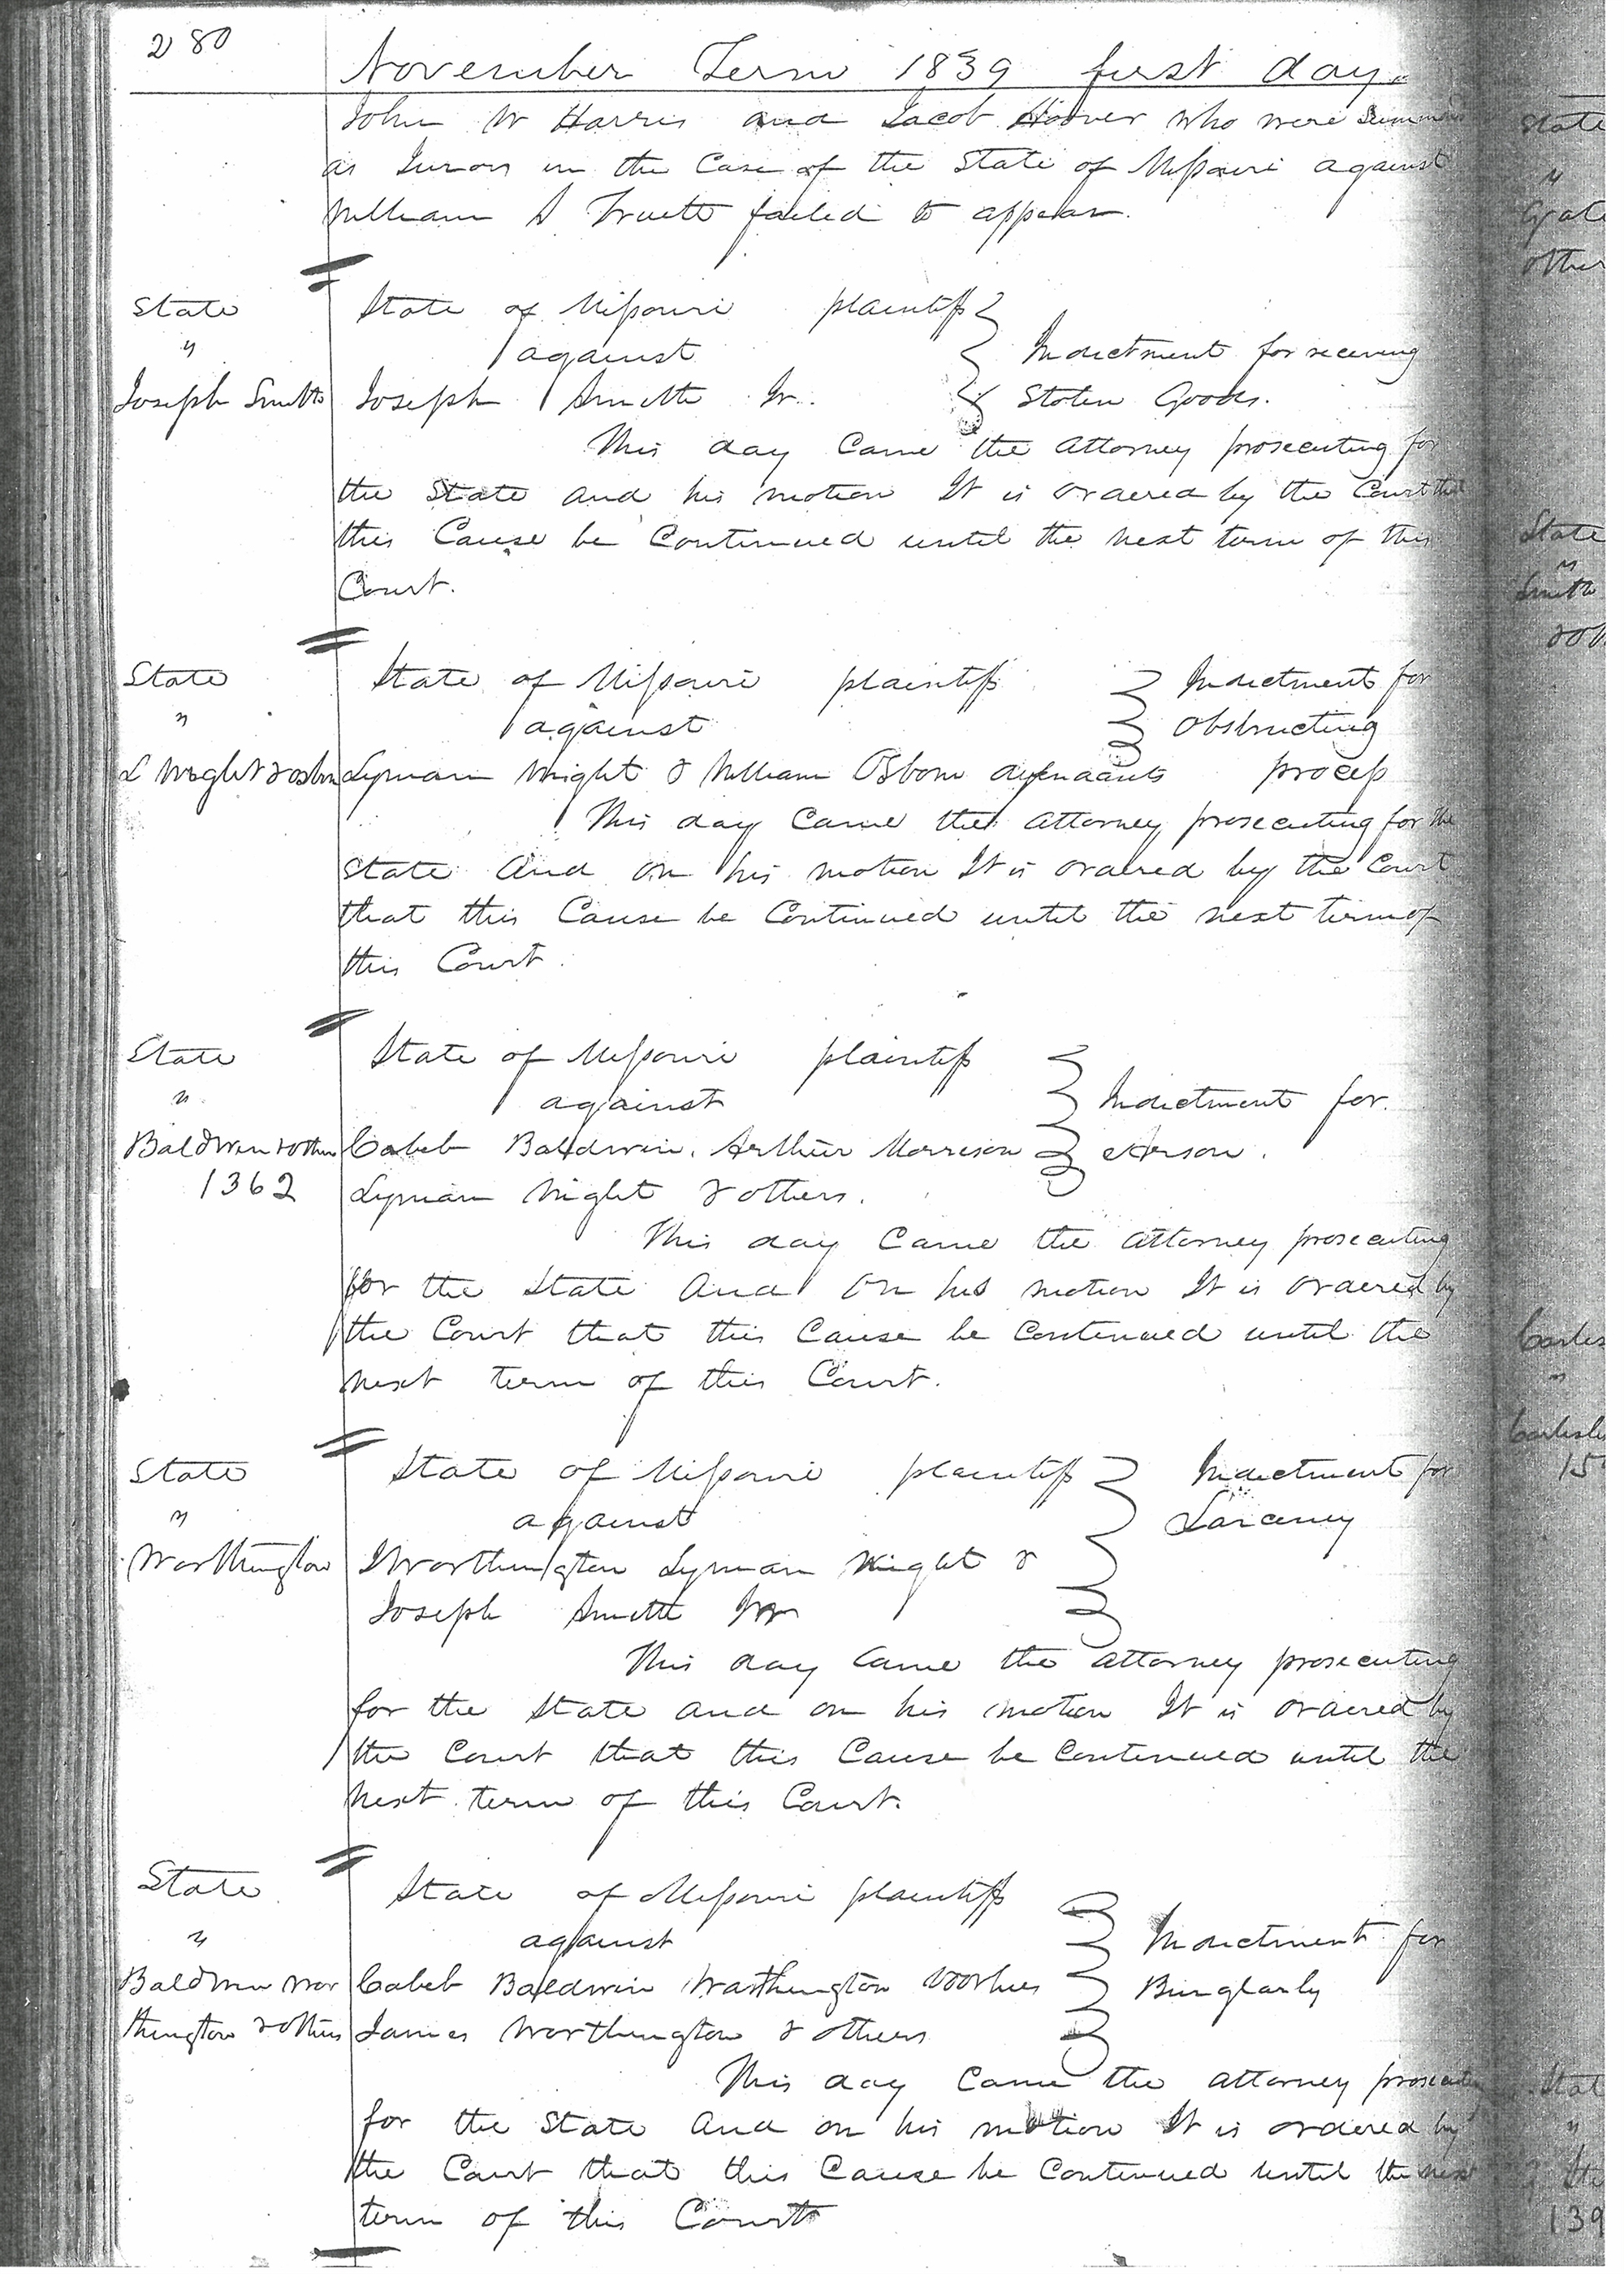 280
November Term 1839 first day.
John W Harris and Jacob Hoover who were Summoned
as Jurors in the Case of the State of Missouri against
William S Truett failed to appear.
State State of Missouri plaintiff
" against Indictment for receiving
Joseph Smith Joseph Smith Jr. Stolen Goods.
This day Came the attorney prosecuting for
the State and his motion It is ordered by the Court that
this Cause be Continued until the next term of this
Court.
State State of Missouri plaintiff Indictment for
" against Obstructing
L Wight & osbn Lyman Wight & William Osborn defendants process
This day Came the attorney prosecuting for the
State And on his motion It is ordered by the Court
that this Cause be Continued until the next term of
this Court.
State State of Missouri plaintiff
" against Indictment for
Baldwin & others Caleb Baldwin, Arthur Morrison Arson.
1362 Lyman Wight & others.
This day Came the attorney prosecuting
for the State And On his motion It is ordered by
the Court that this Cause be Continued until the
next term of this Court.
State State of Missouri plaintiff Indictment for
" against Larceny
Worthington J Worthington Lyman Wight &
Joseph Smith Jr
This day Came the attorney prosecuting
for the State and on his motion It is ordered by
the Court that this Cause be Continued until the
next term of this Court.
State State of Missouri plaintiff
" against Indictment for
Baldwin Wor Caleb Baldwin Warthington Voorhies Burglarly
thington & others James Worthington & others
This day Came the attorney prosecuting
for the State And on his motion It is ordered by
the Court that this Cause be Continued until the next
term of this Court
State
"
other
State
"
Smith
State
139